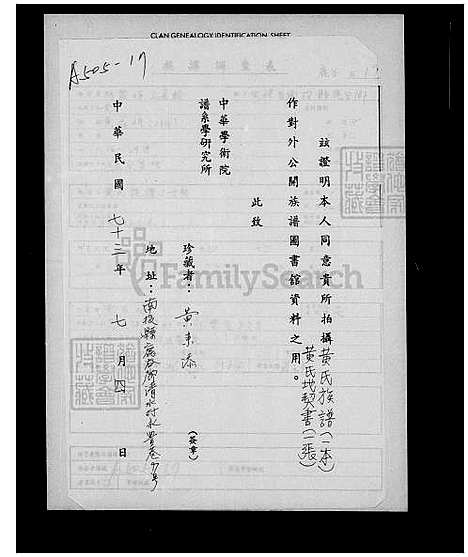 CLAN GENEALOGY IDENTIFICATION SHEET
A505-17
茲證明本人同意貴所拍攝黃氏族譜(一本)
黃氏地契書(一張)
作對外公開族譜圖書館資料之用。
此致
中華學術院
譜系學研究所
珍藏者：黃来添(簽章)
地址：南投縣鹿谷鄉清水村水巷9号
中華民國七十三年七月四日
FamilySearch